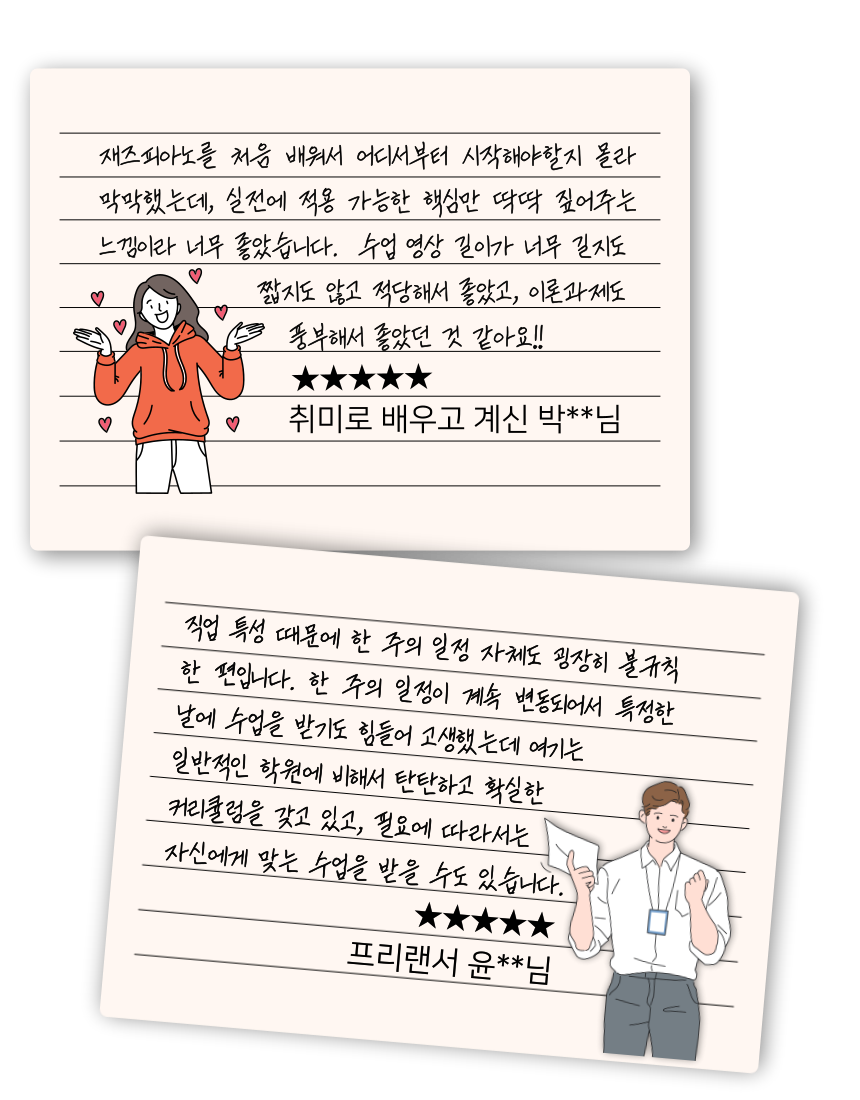 재즈피아노를 처음 배워서 어디서부터 시작해야할지 몰라
막막했는데, 실전에 적용 가능한 핵심만 딱딱 짚어주는
느낌이라 너무 좋았습니다. 수업 영상 길이가 너무 길지도
짧지도 않고 적당해서 좋았고, 이론과제도
풍부해서 좋았던 것 같아요!!
★★★★★
취미로 배우고 계신 박**님
직업 특성 때문에 한 주의 일정 자체도 굉장히 불규칙
한 편입니다. 한 주의 일정이 계속 변동되어서 특정한
날에 수업을 받기도 힘들어 고생했는데 여기는
일반적인 학원에 비해서 탄탄하고 확실한
커리큘럼을 갖고 있고, 필요에 따라서는
자신에게 맞는 수업을 받을 수도 있습니다.
★★★★★
프리랜서 윤**님